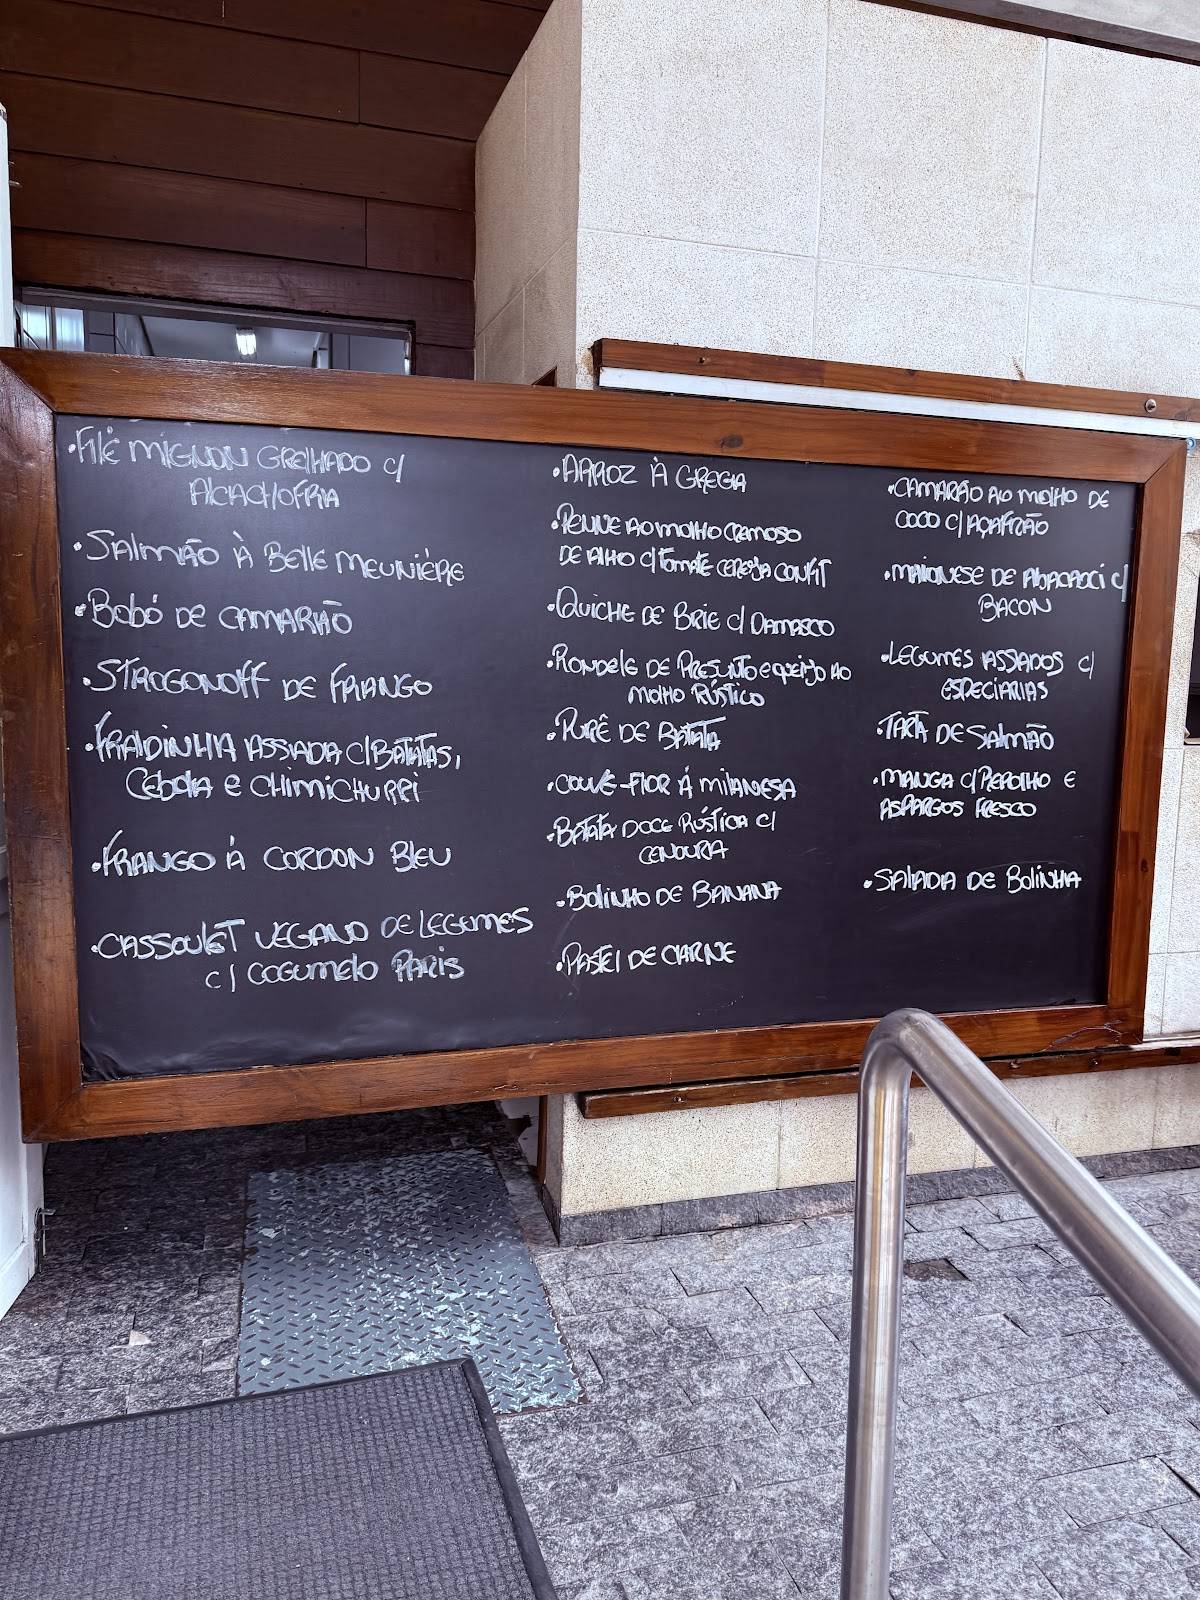 •FILÉ MIGNON GRELHADO C/
ALCACHOFRIA
•SALMÃO À BELLE MEUNIÈRE
•BOBÓ DE CAMARÃO
•STROGONOFF DE FRANGO
•FRALDINHA ASSADA C/BATATAS,
CEBOLA E CHIMICHURRI
•FRANGO À CORDON BLEU
•CASSOULET VEGANO DE LEGUMES
C/ COGUMELO PARIS
•ARROZ À GREGA
•PENNE AO MOLHO CREMOSO
DE ALHO C/TOMATE CEREJA CONFIT
•QUICHE DE BRIE C/ DAMASCO
•RONDELE DE PRESUNTO E QUEIJO AO
MOLHO RÚSTICO
•PURÊ DE BATATA
•COUVE-FLOR À MILANESA
•BATATA DOCE RÚSTICA C/
CENOURA
•BOLINHO DE BANANA
•PASTEL DE CARNE
•CAMARÃO AO MOLHO DE
COCO C/ AÇAFRÃO
•MAIONESE DE C/
BACON
•LEGUMES ASSADOS C/
ESPECIARIAS
•TARTA DE SALMÃO
•MANGA C/ REPOLHO E
ASPARGOS FRESCO
•SALADA DE BOLINHA